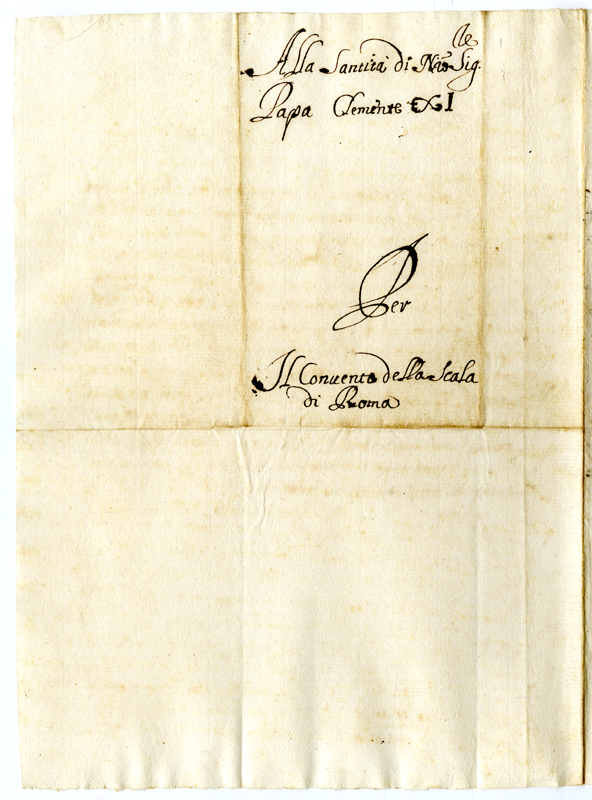 Alla Santità di Nro Sig.re
Papa Clemente XI
Per
Il Conuento della Scala
di Roma